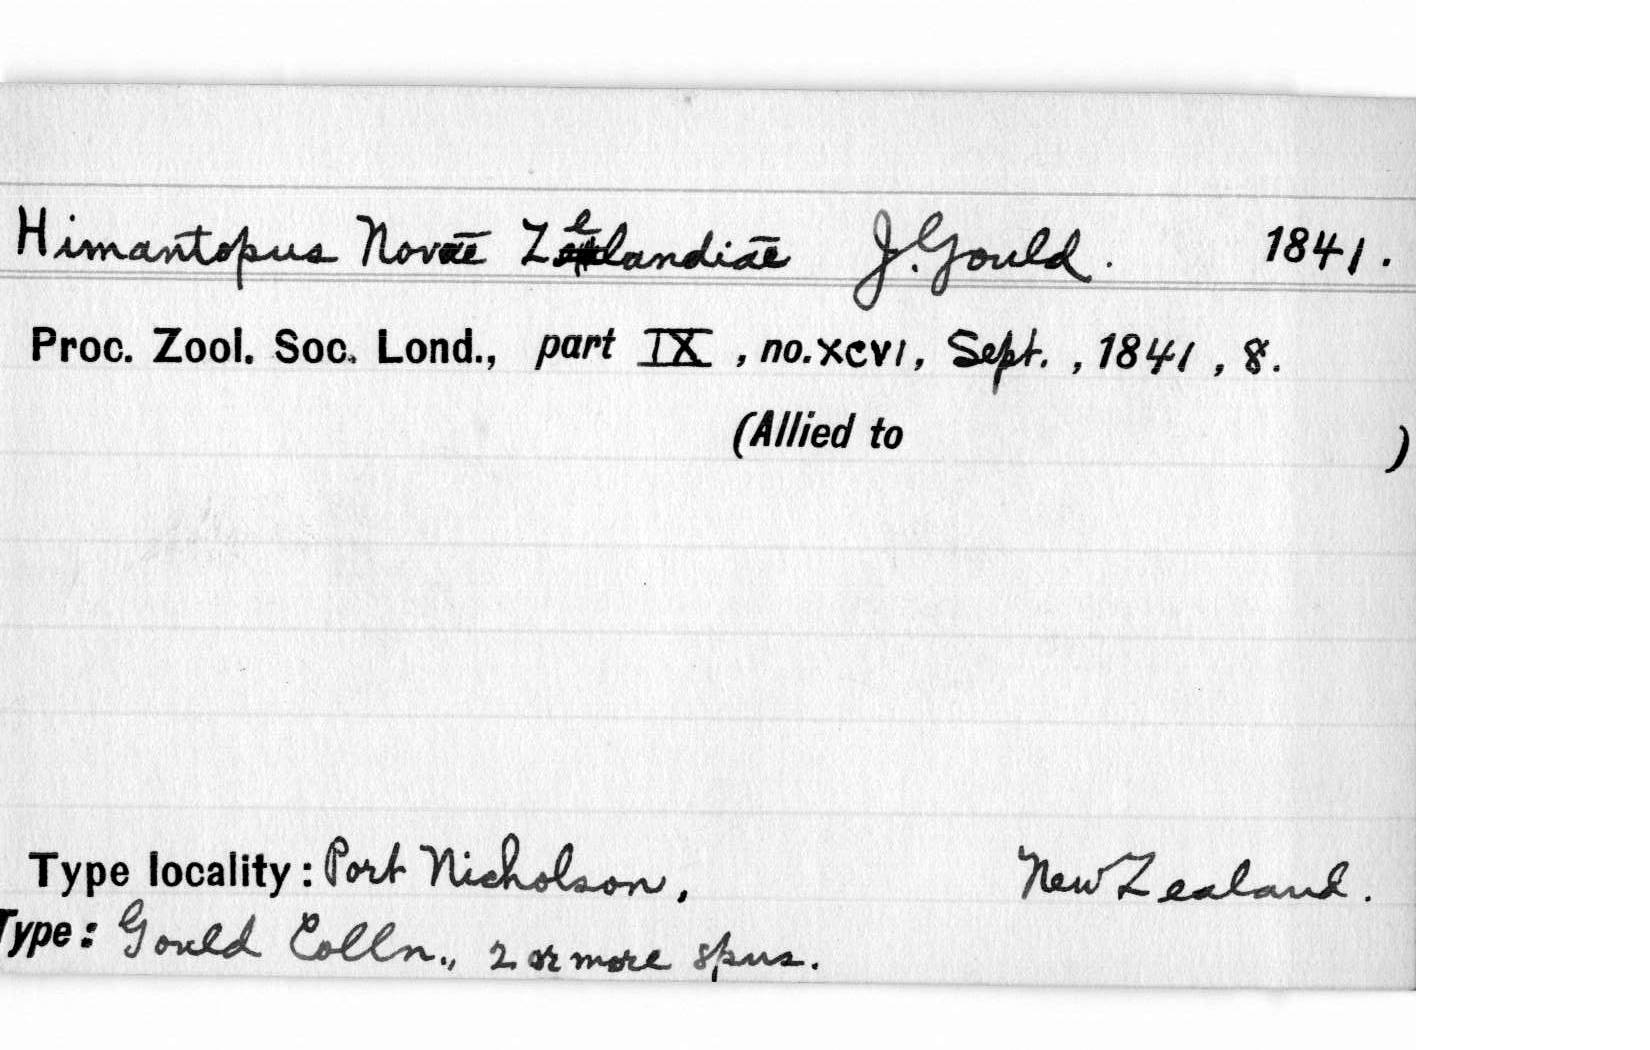 Himantopus Novæ Zelandiæ J. Gould. 1841.
Proc. Zool. Soc. Lond., part IX, no. XCVI, Sept., 1841, 8.
(Allied to )
Type locality: Port Nicholson, New Zealand.
Type: Gould Colln., 2 or more spns.